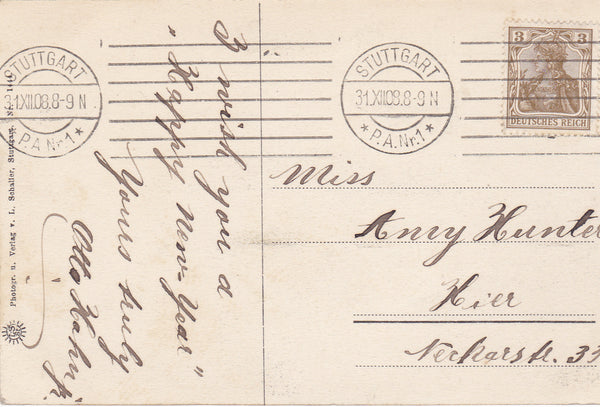 STUTTGART
31.XII.08.8-9 N
* P.A.Nr.1 *
STUTTGART
31.XII.08.8-9 N
* P.A.Nr.1 *
3 3
DEUTSCHES REICH
I wish you a
"Happy New-Year"
Yours truly
Otto Hahn jr.
Miss
Amy Hunter
Hier
Neckarstr. 33
Photogr. u. Verlag v. L. Schaller, Stuttgart.